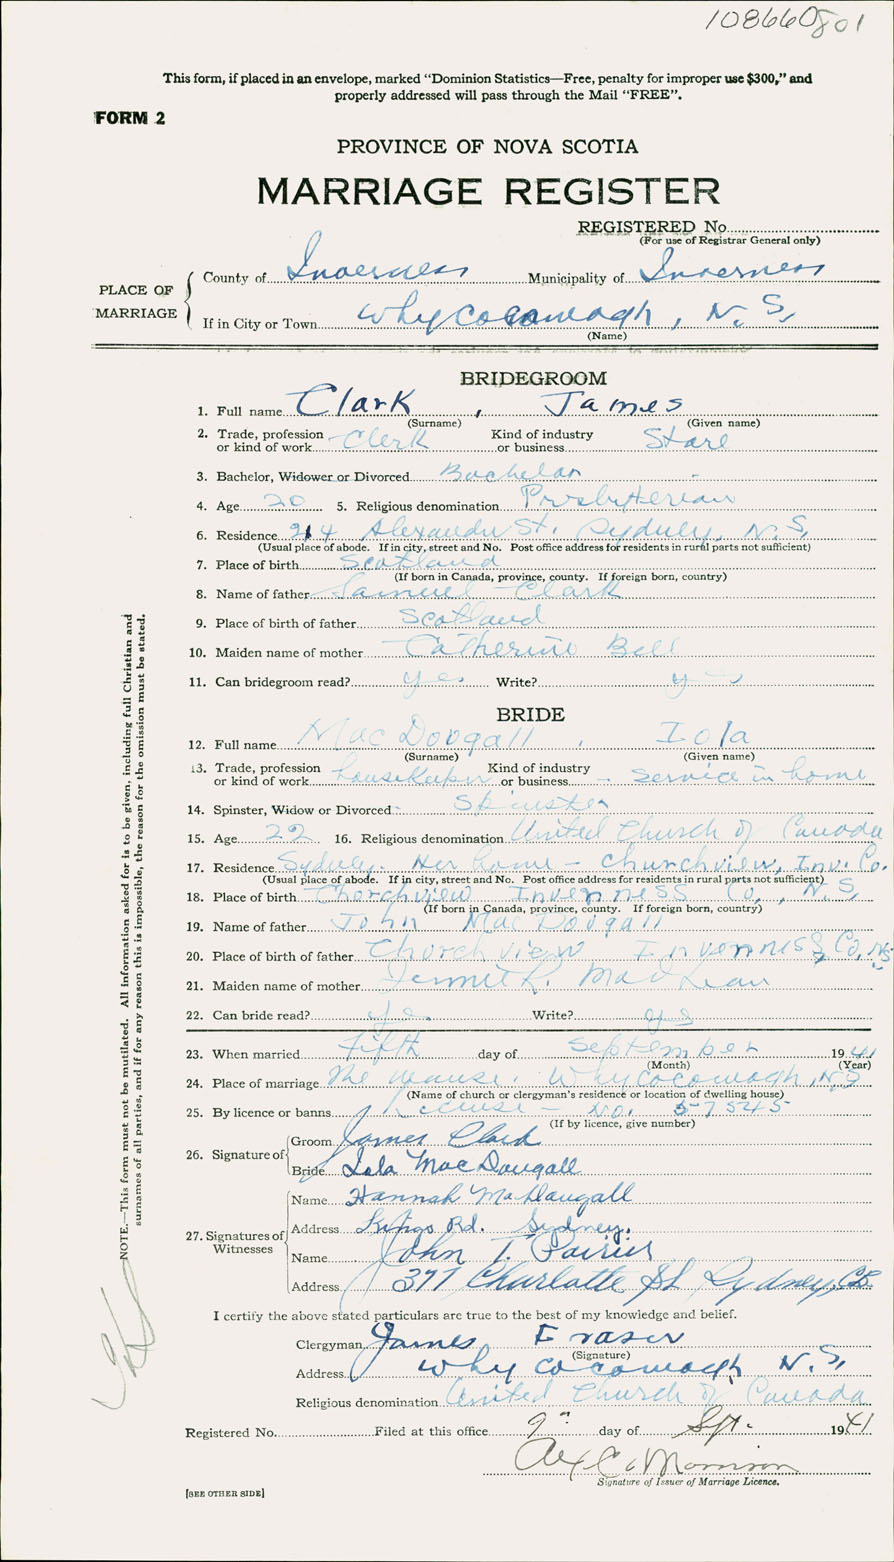 108660801
This form, if placed in an envelope, marked "Dominion Statistics—Free, penalty for improper use $300," and
properly addressed will pass through the Mail "FREE".
FORM 2
PROVINCE OF NOVA SCOTIA
MARRIAGE REGISTER
REGISTERED No.
(For use of Registrar General only)
PLACE OF MARRIAGE
County of Inverness Municipality of Inverness
If in City or Town Whycocomagh, N.S.
(Name)
BRIDEGROOM
1. Full name Clark, James
(Surname) (Given name)
2. Trade, profession or kind of work Clerk Kind of industry or business Store
3. Bachelor, Widower or Divorced Bachelor
4. Age 20 5. Religious denomination Presbyterian
6. Residence 214 Alexander St. Sydney, N.S.
(Usual place of abode. If in city, street and No. Post office address for residents in rural parts not sufficient)
7. Place of birth Scotland
(If born in Canada, province, county. If foreign born, country)
8. Name of father Samuel Clark
9. Place of birth of father Scotland
10. Maiden name of mother Catherine Bell
11. Can bridegroom read? yes Write? yes
BRIDE
12. Full name MacDougall, Iola
(Surname) (Given name)
13. Trade, profession or kind of work housekeeper Kind of industry or business – service in home
14. Spinster, Widow or Divorced Spinster
15. Age 22 16. Religious denomination United Church of Canada
17. Residence Sydney. Her home – Churchview, Inv. Co.
(Usual place of abode. If in city, street and No. Post office address for residents in rural parts not sufficient)
18. Place of birth Churchview Inverness Co., N.S.
(If born in Canada, province, county. If foreign born, country)
19. Name of father John MacDougall
20. Place of birth of father Churchview Inverness Co, NS
21. Maiden name of mother MacLean
22. Can bride read? yes Write? yes
23. When married fifth day of September 1941
(Month) (Year)
24. Place of marriage The manse. Whycocomagh, N.S
(Name of church or clergyman's residence or location of dwelling house)
25. By licence or banns License – No. 57545
(If by licence, give number)
26. Signature of
Groom James Clark
Bride Iola MacDougall
27. Signatures of Witnesses
Name Hannah MacDougall
Address Kings Rd. Sydney.
Name John T.
Address 377 Charlotte St Sydney, C.B.
I certify the above stated particulars are true to the best of my knowledge and belief.
Clergyman James Fraser
(Signature)
Address Whycocomagh N.S.
Religious denomination United Church of Canada
Registered No. Filed at this office 9" day of Sept. 1941
Alex C. Morrison
Signature of Issuer of Marriage Licence.
[SEE OTHER SIDE]
NOTE.—This form must not be mutilated. All information asked for is to be given, including full Christian and
surnames of all parties, and if for any reason this is impossible, the reason for the omission must be stated.